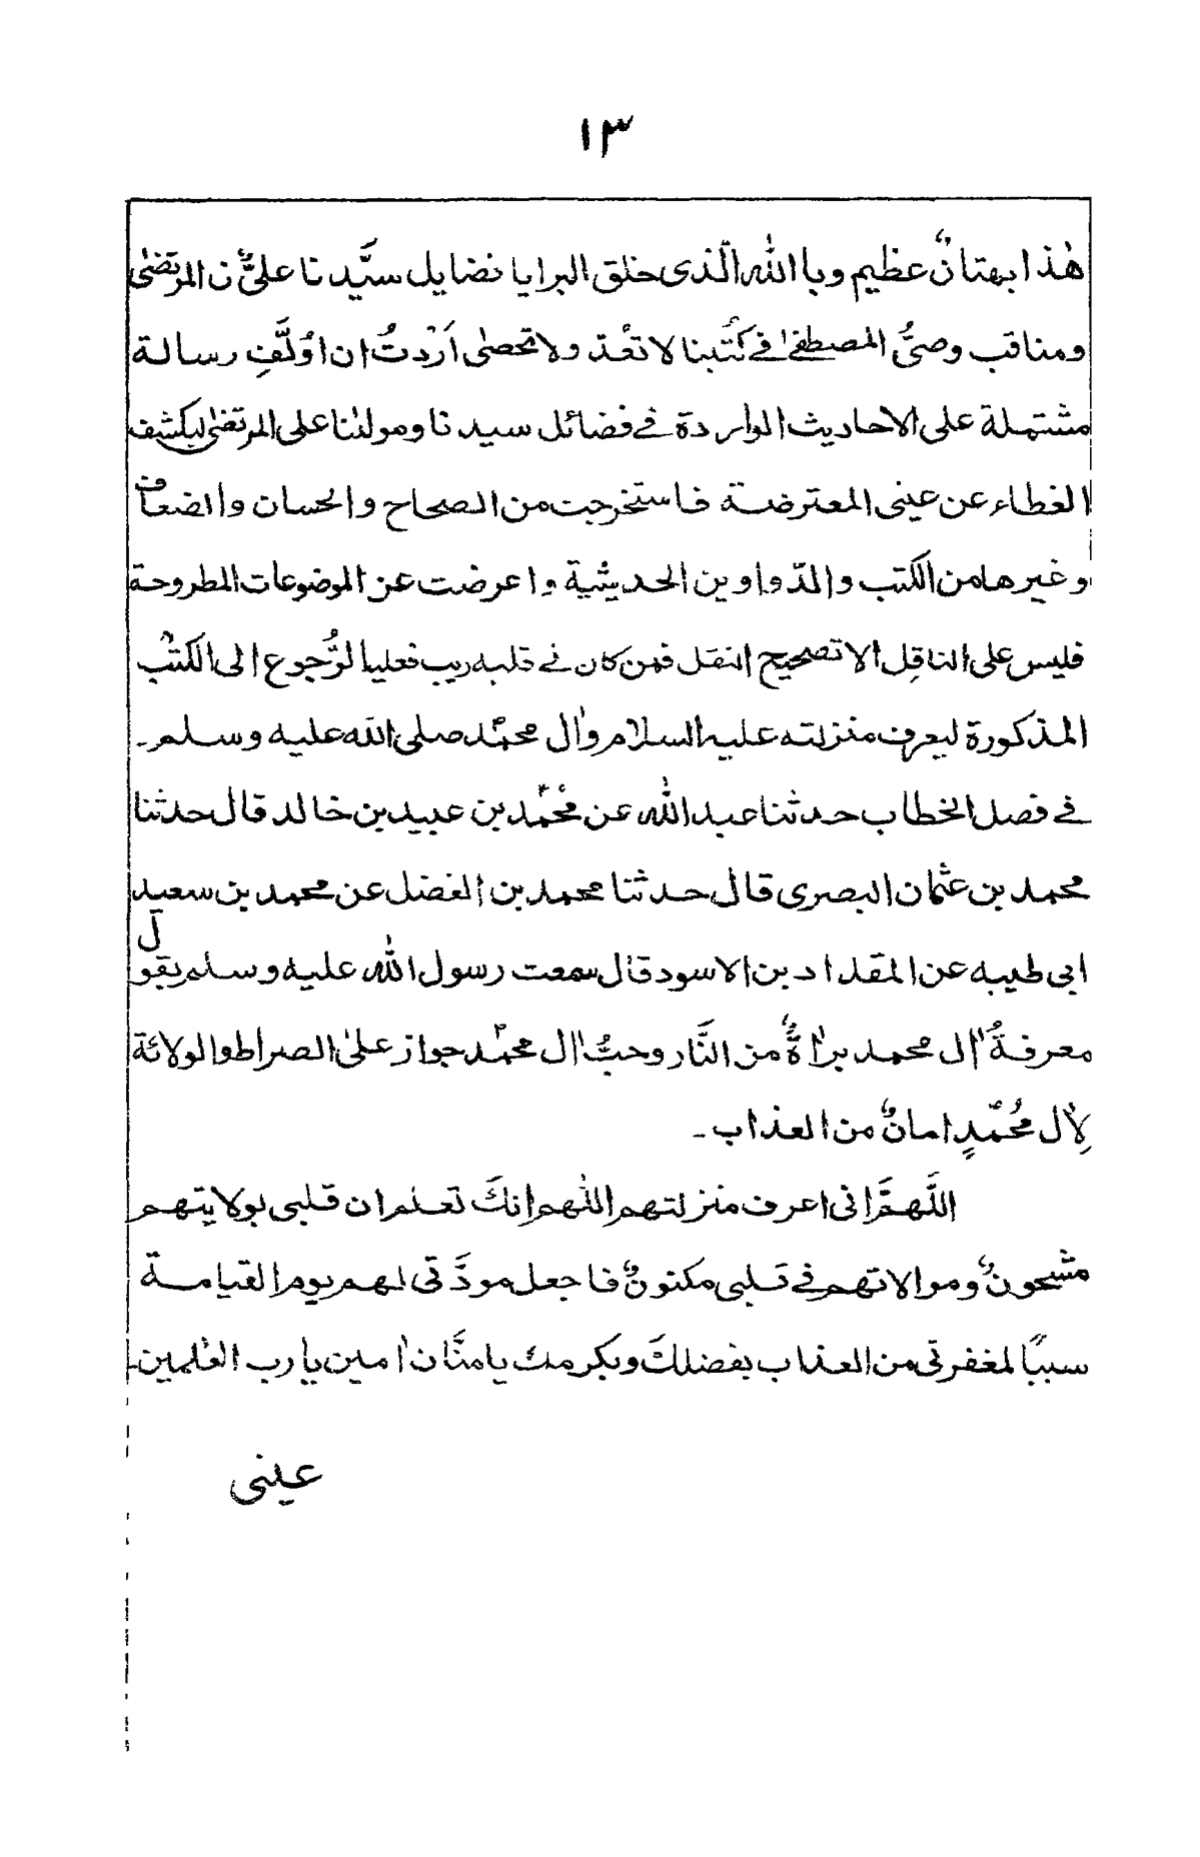 ١٣
هٰذا بهتانٌ عظيم وبا اللّٰه الّذى خلق البرايا فضايل سيَّدنا علىٌّ ن المرتضىٰ
ومناقب وصىُّ المصطفےٰ فے كُتُبنا لا تعُد ولا تحصٰى اَرَدْتُ ان اؤلَّفِ رسالة
مشتملة على الاحاديث الواردة فے فضائل سيدنا ومولٰنا على المرتضىٰ ليكشف
الغطاء عن عينى المعترضة فاستخرجت من الصحاح والحسان والضعاف
وغيرهامن الكتب والدّواوين الحديثية واعرضت عن الموضوعات المطروحة
فليس على الناقِل الا تصحيح النقل فمن كان فے قلبه ريب فعليا لرُّجوع الى الكتُب
المذكورة ليعرف منزلته عليه السلام واٰل محمّد صلى اللّه عليه وسلم۔
فے فصل الخطاب حدثنا عبد اللّٰه عن مُحمّد بن عبيد بن خالد قال حدثنا
محمد بن عثمان البصرى قال حدثنا محمد بن الفضل عن محمد بن سعيد
ابى طيبه عن المقداد بن الاسود قال سمعت رسول اللّٰه عليه وسلم يقول
معرفةُ اٰل محمد براٰةٌ من النَّار وحبُّ اٰل محمّد جواز علىٰ الصراط والولائة
لِاٰل مُحمّدٍ امانٌ من العذاب۔
اللَّهمَّ انى اعرف منزلتهم اللّٰهم انكَ تعلم ان قلبى بولايتهم
مشحونٌ وموالاتهم فے قلبى مكنونٌ فاجعل مودَّتى لهم يوم القيامة
سببًا لمغفرتى من العذاب بفضلكَ وبكرمك يا منَّان اٰمين يا رب العٰلمين۔
عينى